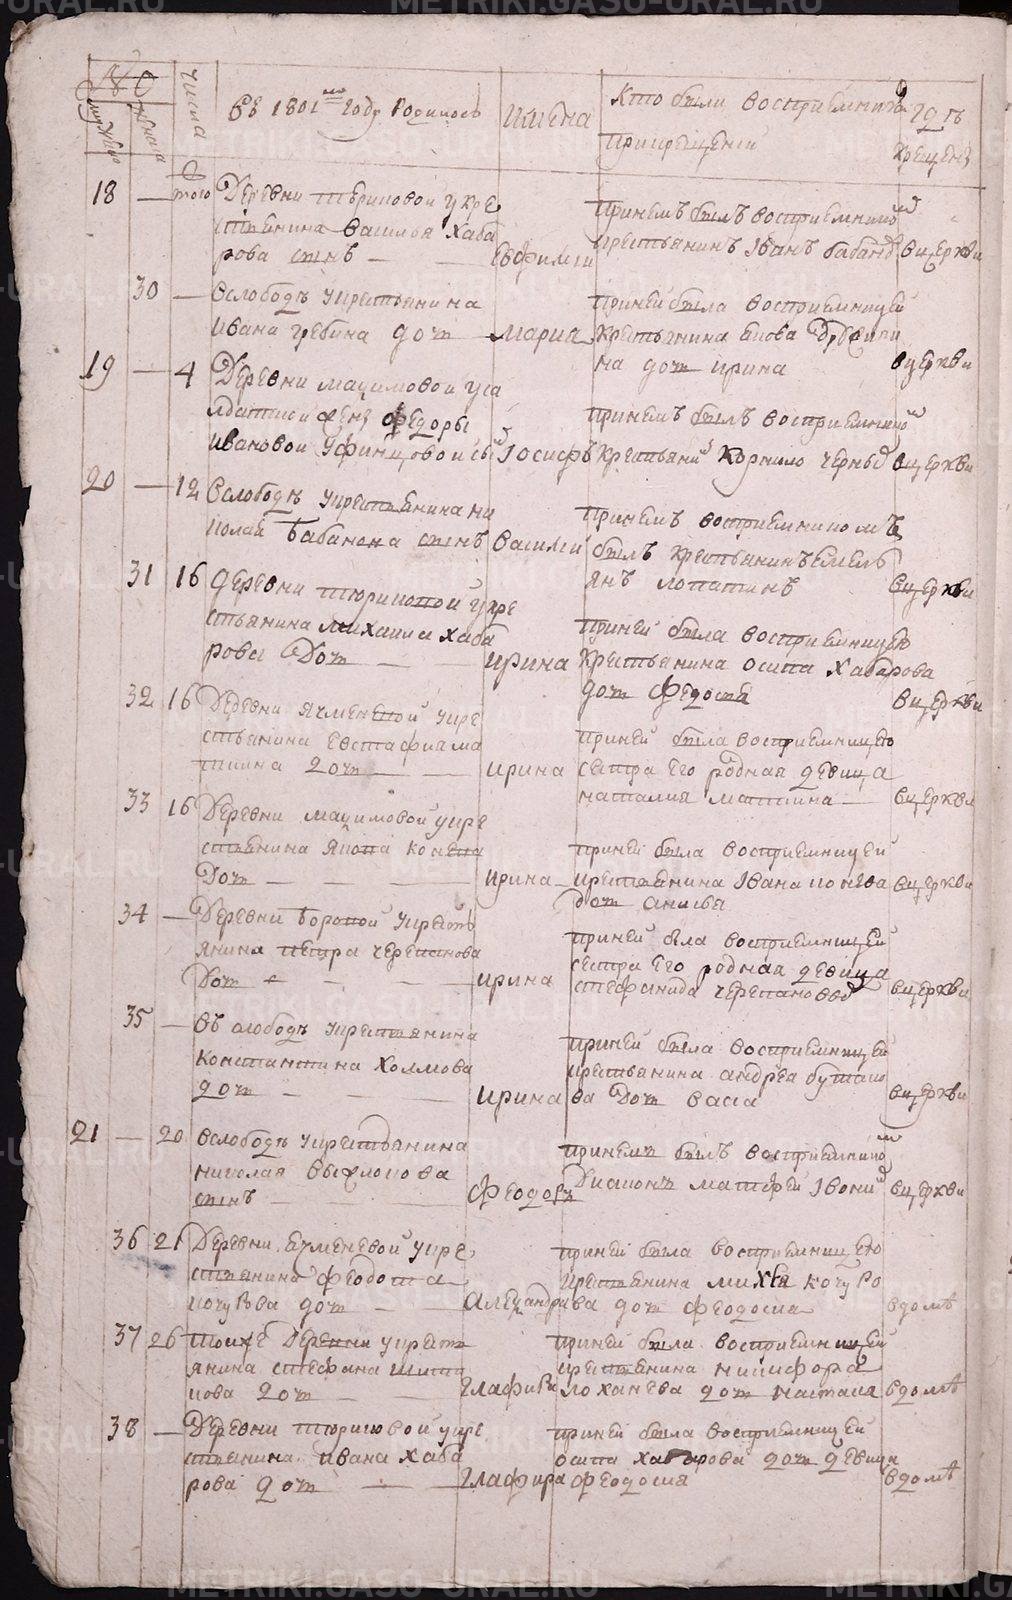 №
мужеска
женска
числа
Въ 1801мъ году Родились
имена
кто были восприемники
при крещении
где
крещены
18
— того
Деревни тюриковой у кре
стьянина василья хаба
рова сынъ —
Евфимии
принемъ былъ восприемникомъ
крестьянинъ Iванъ бабано
вцеркви
30
—
вслободѣ укрестьянина
ивана гребина дочь
мариа
приней была восприемницей
крестьянина
на дочь ирина
вцеркви
19
— 4
Деревни мацимовой уса
лдатской жены федоры
ивановой сы
Iосифъ
принемъ былъ восприемникомъ
крестьянинъ корнило черны
вцеркви
20
— 12
вслободѣ укрестьянина ни
колая бабанова сынъ
василеи
принемъ восприемникомъ
былъ крестьянинъ емель
янъ лопатинъ
вцеркви
31
16
деревни тюриковой укре
стьянина михаила хаба
рова дочь —
ирина
приней была восприемницею
крестьянина осипа хабарова
дочь федосья
вцеркви
32
16
Деревни ячменевой укре
стьянина евстафиа ма
ткина дочь —
ирина
приней была восприемницею
сестра его родная девица
наталия маткина —
вцеркви
33
16
Деревни мацимовой укре
стьянина якова конева
дочь —
ирина
приней была восприемницей
крестьянина Iвана конева
дочь анисья
вцеркви
34
—
Деревни боровой укресть
янина петра черепанова
дочь —
ирина
приней была восприемницей
сестра его родная девица
стефанида черепанова
вцеркви
35
—
въ слободѣ укрестьянина
константина холмова
дочь —
ирина
приней была восприемницей
крестьянина андреа бутако
ва дочь васса
вцеркви
21
— 20
вслободѣ укрестьянина
николая
сынъ —
феодоръ
принемъ былъ восприемникомъ
Диаконъ матфей Iвони
вцеркви
36
21
Деревни ячменевой укре
стьянина федота
кочурова дочь —
александра
приней была восприемницею
крестьянина михея кочуро
ва дочь феодосиа
вдомѣ
37
26
тоиже деревни укресть
янина стефана шипи
кова дочь —
глафира
приней была восприемницей
крестьянина никифора
лоханева дочь настасия
вдомѣ
38
—
Деревни тюриковой укре
стьянина ивана хаба
рова дочь —
глафира
приней была восприемницей
осипа хабарова дочь девица
феодосия
вдомѣ
METRIKI.GASO-URAL.RU